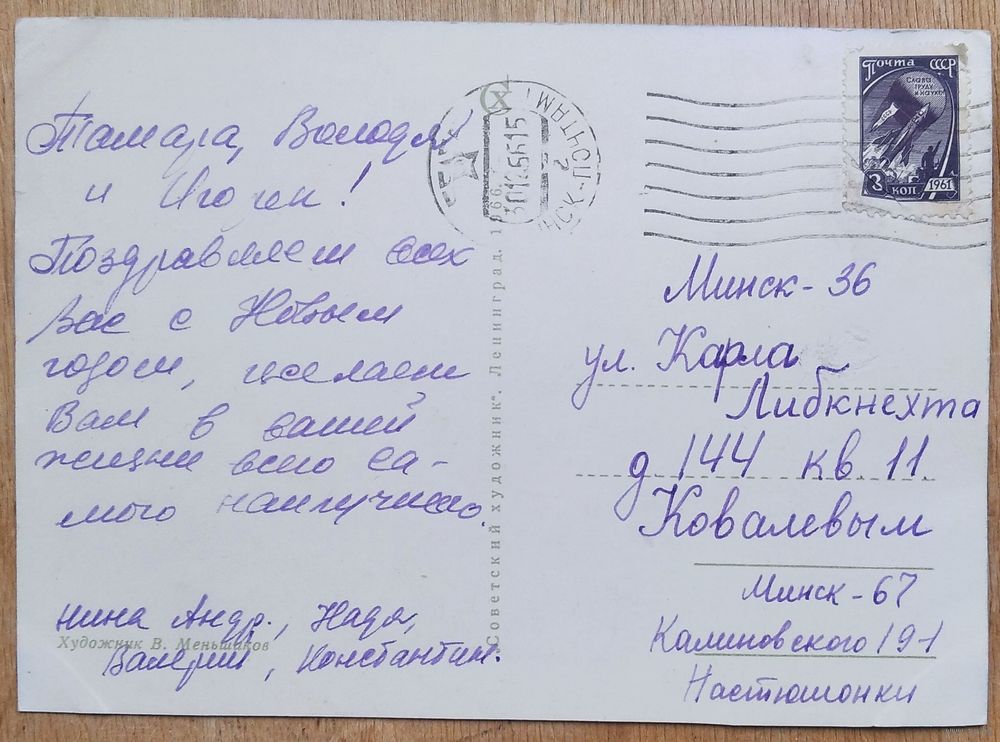 Тамара, Володя
и Игорек!
Поздравляем всех
Вас с Новым
годом, желаем
Вам в вашей
жизни всего са-
мого наилучшего.
Нина Андр., Надя,
Валерий, Константин.
Художник В. Меньшиков
"Советский художник". Ленинград. 1966.
Почта СССР
Слава
труду
и науке
3
коп
1961
Минск-36
ул. Карла
Либкнехта
д 144 кв 11
Ковалевым
Минск-67
Калиновского 19-1
Настюшонки